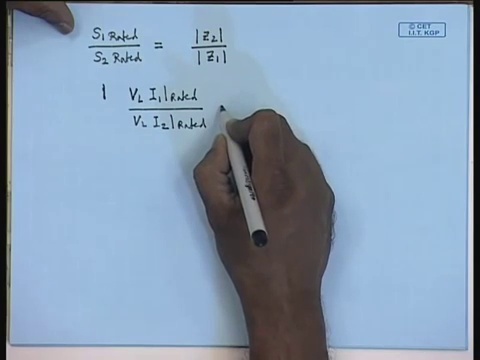 © CET
I.I.T. KGP
S1 Rated / S2 Rated = |Z2| / |Z1|
| VL I1|Rated / VL I2|Rated